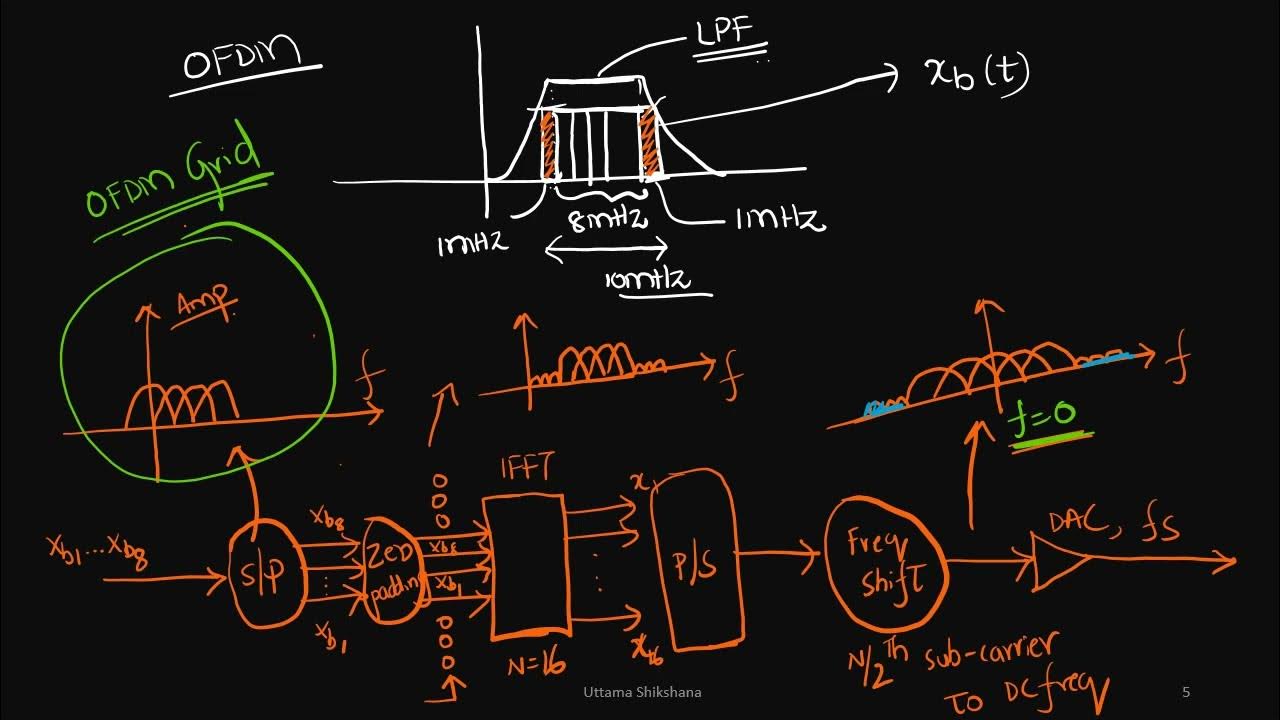 OFDM
LPF
xb(t)
OFDM Grid
1MHz
8MHz
1MHz
10MHz
Amp.
f
f
f
f=0
IFFT
xb1...xb8
S/P
xb8
xb1
Zero
padding
0
0
0
xb8
xb1
0
0
0
N=16
x1
x16
P/S
Freq
Shift
DAC, fs
N/2th sub-carrier
TO DC freq
Uttama Shikshana
5